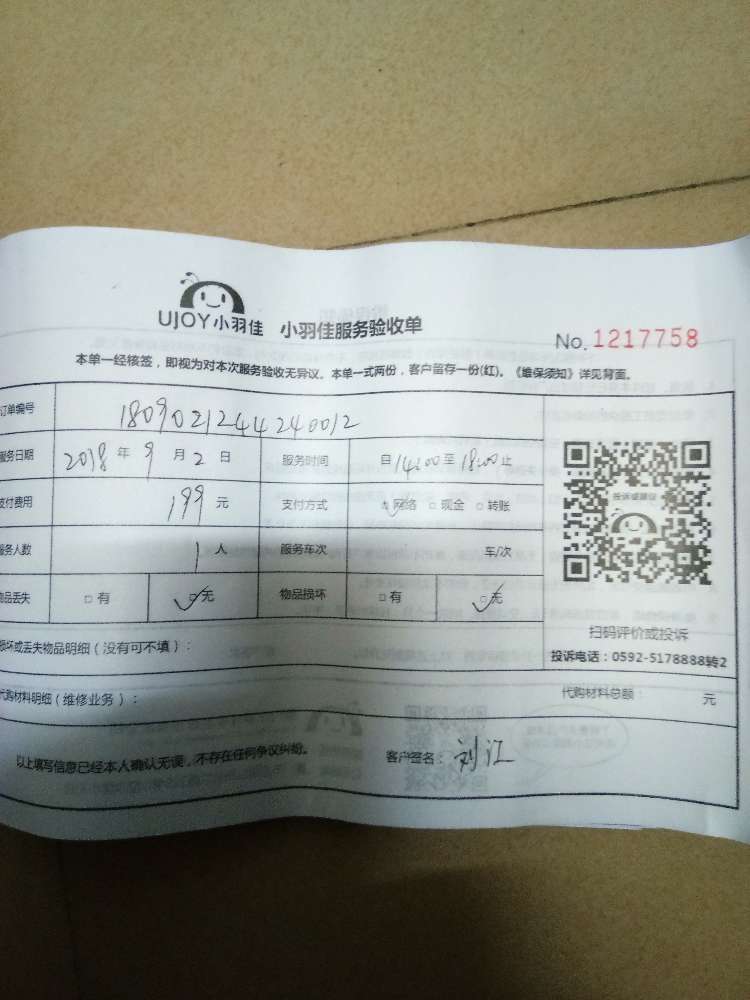 UJOY小羽佳 小羽佳服务验收单
No. 1217758
本单一经核签，即视为对本次服务验收无异议。本单一式两份，客户留存一份(红)。《维保须知》详见背面。
订单编号 1809021244240012
服务日期 2018 年 9 月 2 日 服务时间 自 14:00 至 18:00 止
支付费用 199 元 支付方式 ☑网络 □现金 □转账
服务人数 1 人 服务车次 车/次
物品丢失 □有 ☑无 物品损坏 □有 ☑无
投诉或建议
扫码评价或投诉
投诉电话：0592-5178888转2
损坏或丢失物品明细（没有可不填）：
代购材料明细（维修业务）： 代购材料总额： 元
以上填写信息已经本人确认无误，不存在任何争议纠纷。 客户签名：刘江